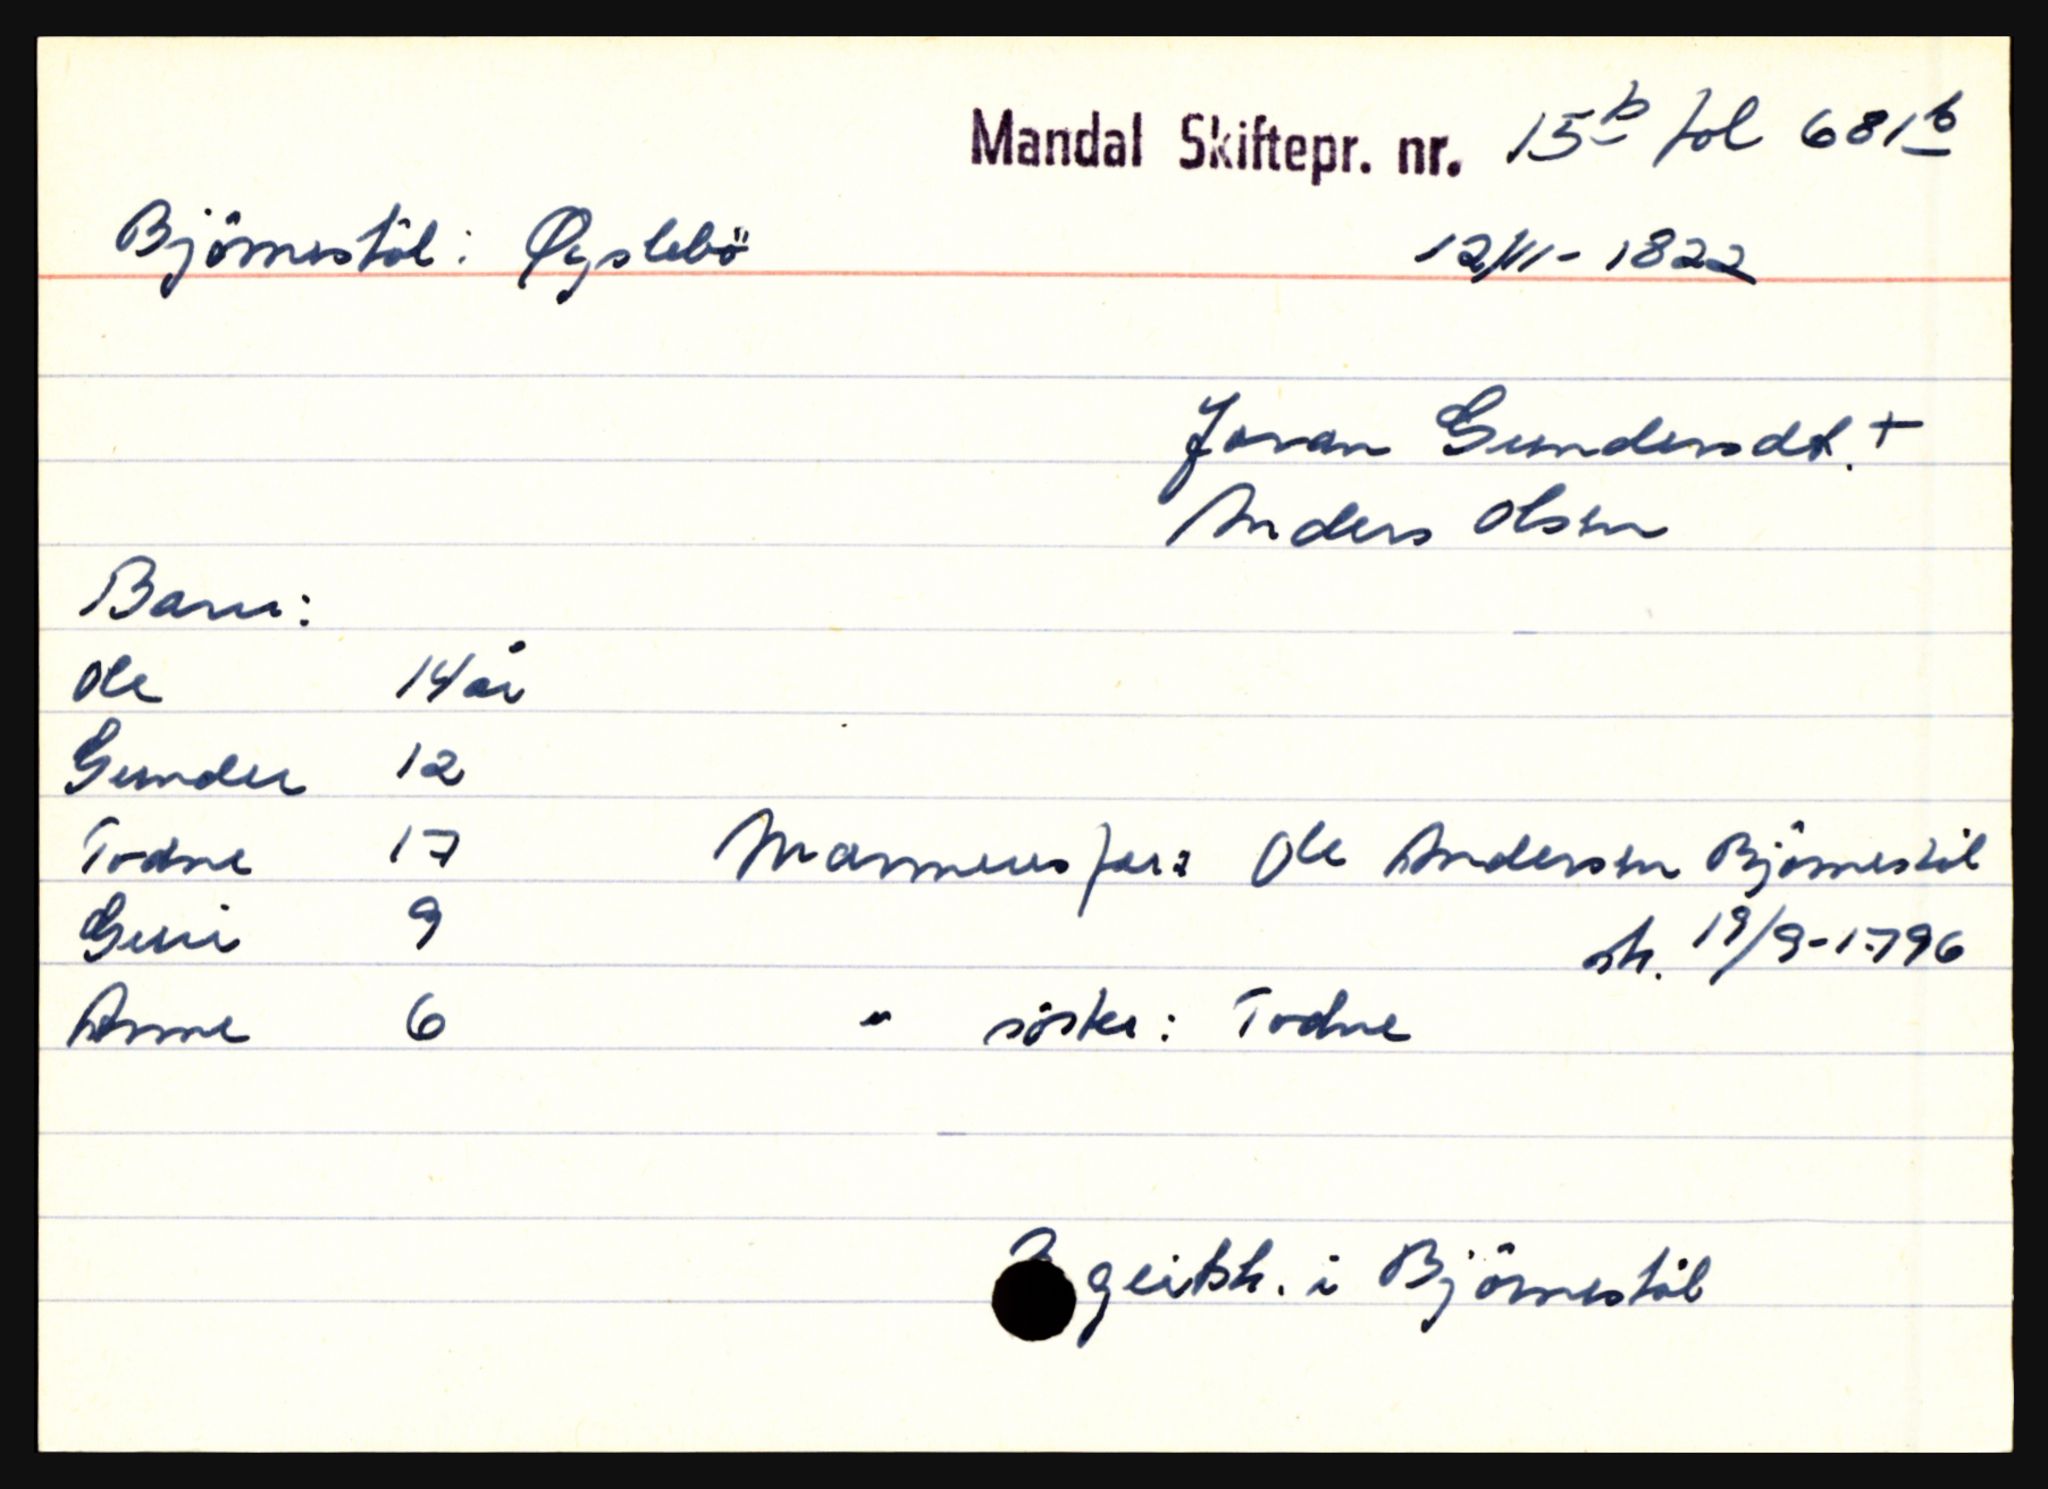 Mandal Skiftepr. nr. 15b fol 681b
Björnestöl: Øyslebö 12/11-1822
Joran Gundersdt. +
Anders Olsen
Barn:
Ole 14 år
Gunder 12
Todne 17 Mannens far: Ole Andersen Björnestöl
Guri 9 sk. 19/9-1796
Anne 6 " söster: Todne
geitsk. i Björnestöl